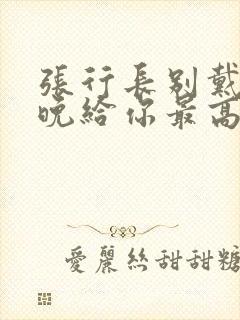 張行長別戴
晚給你最高
愛麗絲甜甜糖